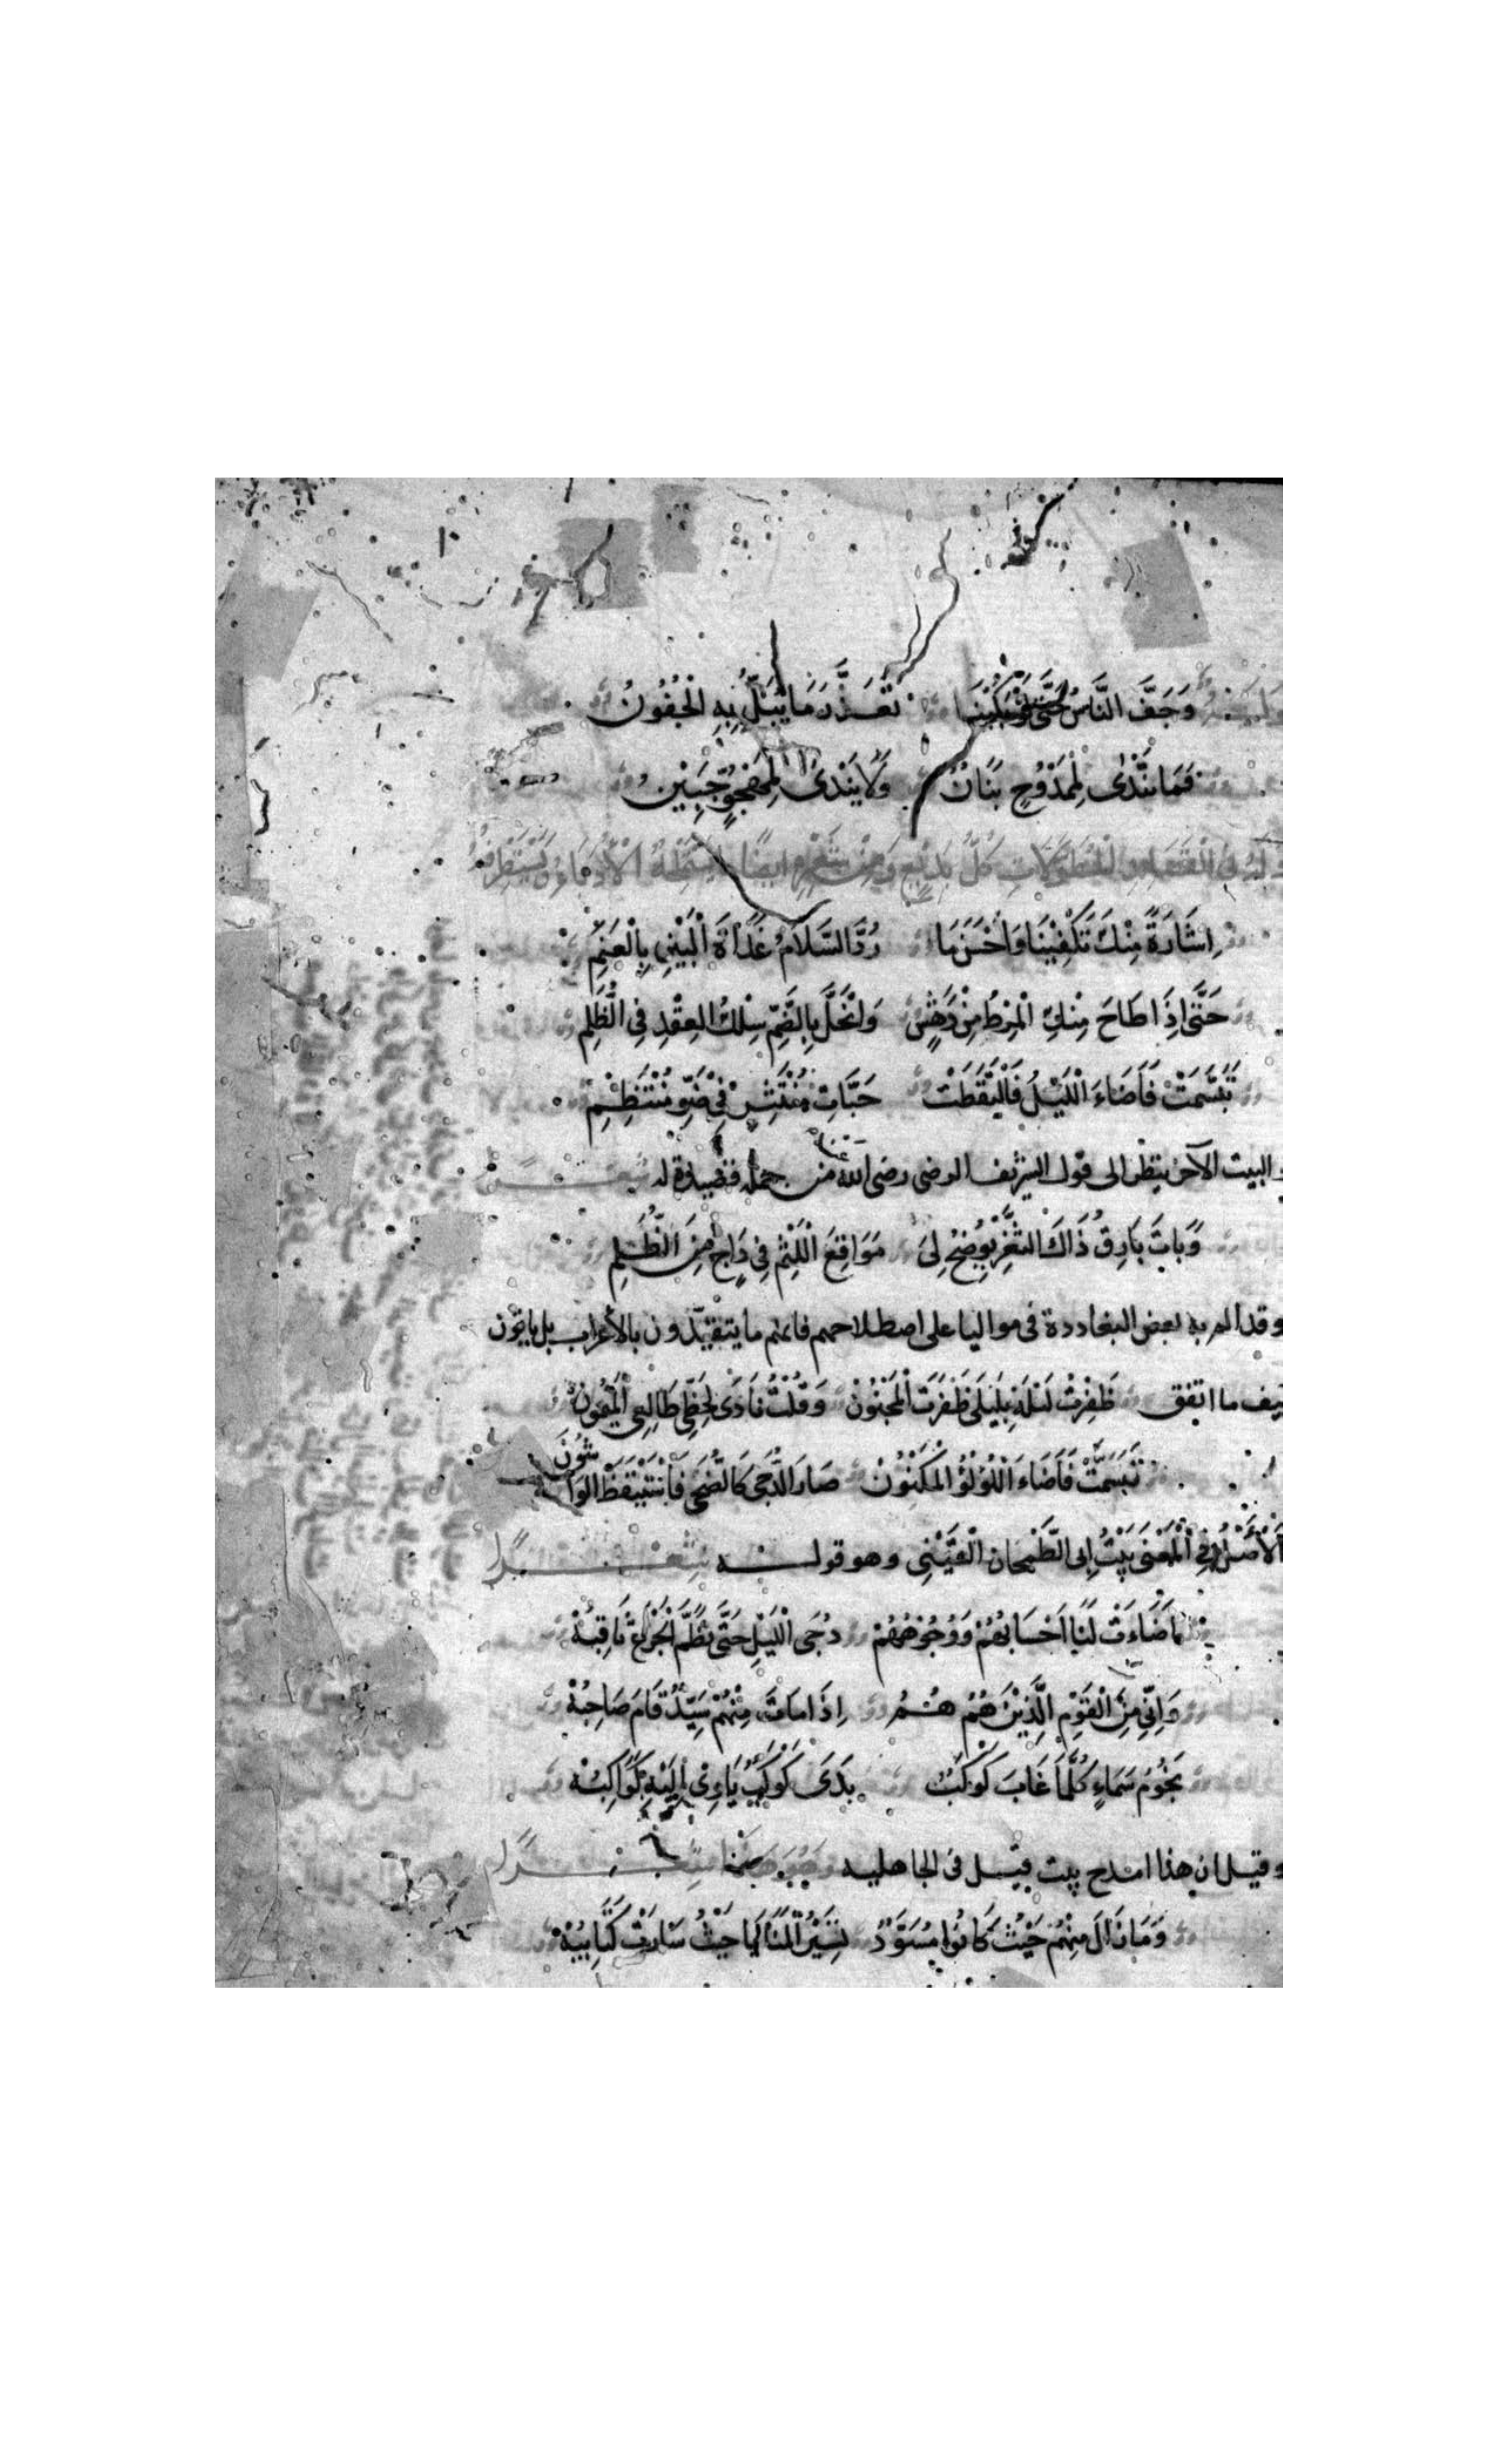 وَجَفَّ النَّاسُ حَتَّى لَوْ بَكَيْنَا تَعَذَّرَ مَا يُبَلُّ بِهِ الْجُفُونُ
فَمَا يَنْدَى لِمَمْدُوحٍ بَنَانٌ وَلَا يَنْدَى لِمَهْجُوٍّ جَبِيْنُ
كُلُّ بَدِيْعٍ وَمِنْ شِعْرِهِ ايضًا
اِشَارَةً مِنْكَ تَكْفِيْنَا وَاَحْسَنُ مَا رُدَّ السَّلَامُ غَدَاةَ الْبَيْنِ بِالْعَنَمِ
حَتَّى اِذَا طَاحَ مِنْكِ الْمِرْطُ مِنْ دَهَشٍ وَانْحَلَّ بِالضَّمِّ سِلْكُ العِقْدِ فِى الظُّلَمِ
تَبَسَّمَتْ فَاَضَاءَ الْلَيْلُ فَالْتَقَطَتْ حَبَّاتِ مُنْتَثِرٍ فِى ضَوْءِ مُنْتَظِمِ
والبيت الآخر ينظر الى قول الشريف الرضى رضى الله من جملة قصيدة له شعـــر
وَبَاتَ بَارِقُ ذَاكَ الثَغْرِ يُوْضِحُ لِىَ مَوَاقِعَ الْلَثْمِ فِى دَاجٍ مِنَ الظُّلَمِ
وقد الم به بعض البغاددة فى مواليا على اصطلاحهم فانهم ما يتقيّدون بالأعراب بل ياتون
كيف ما اتفق ظَفِرْتُ لَيْلَة بِلَيْلَى ظَفْرَت الْمَجْنُوْنْ وَقُلْتُ نَادَى لِحَظِّى طَالِعِى الْمَيْمُونْ
تَبَسَّمَتْ فَاَضَاءَ الْلُؤلُؤُ الْمَكْنُوْنْ صَارَ الدُّجَى كَالضُّحَى فَاسْتَيْقَظَ الوَاشُونَ
الْاَصْلُ فِى الْمَعْنَى بَيْتُ اَبِى الطَّمَحَانِ الْقَيْنِى وهو قولـــه شعــــرًا
اَضَاءَتْ لَنَا اَحْسَابُهُمْ وَوُجُوْهُهُمْ دُجَى الْلَيْلِ حَتَّى نَظَّمَ الْجَزْعَ ثَاقِبُهْ
وَاِنِّى مِنَ الْقَوْمِ الَّذِيْنَ هُمُ هُـمُ اِذَا مَاتَ مِنْهُمْ سَيِّدٌ قَامَ صَاحِبُهْ
نُجُوْمُ سَمَاءٍ كُلَّمَا غَابَ كَوْكَبٌ بَدَى كَوْكَبٌ يَاوِى اِلَيْهِ كَوَاكِبُهْ
وقيل ان هذا امدح بيت قيل فى الجاهليه شعــــرًا
وَمَا زَالَ مِنْهُمْ حَيْثُ كَانُوا مُسَوَّدٌ تَسِيْرُ الْمَنَايَا حَيْثُ سَارَتْ كَتَايِبُهْ